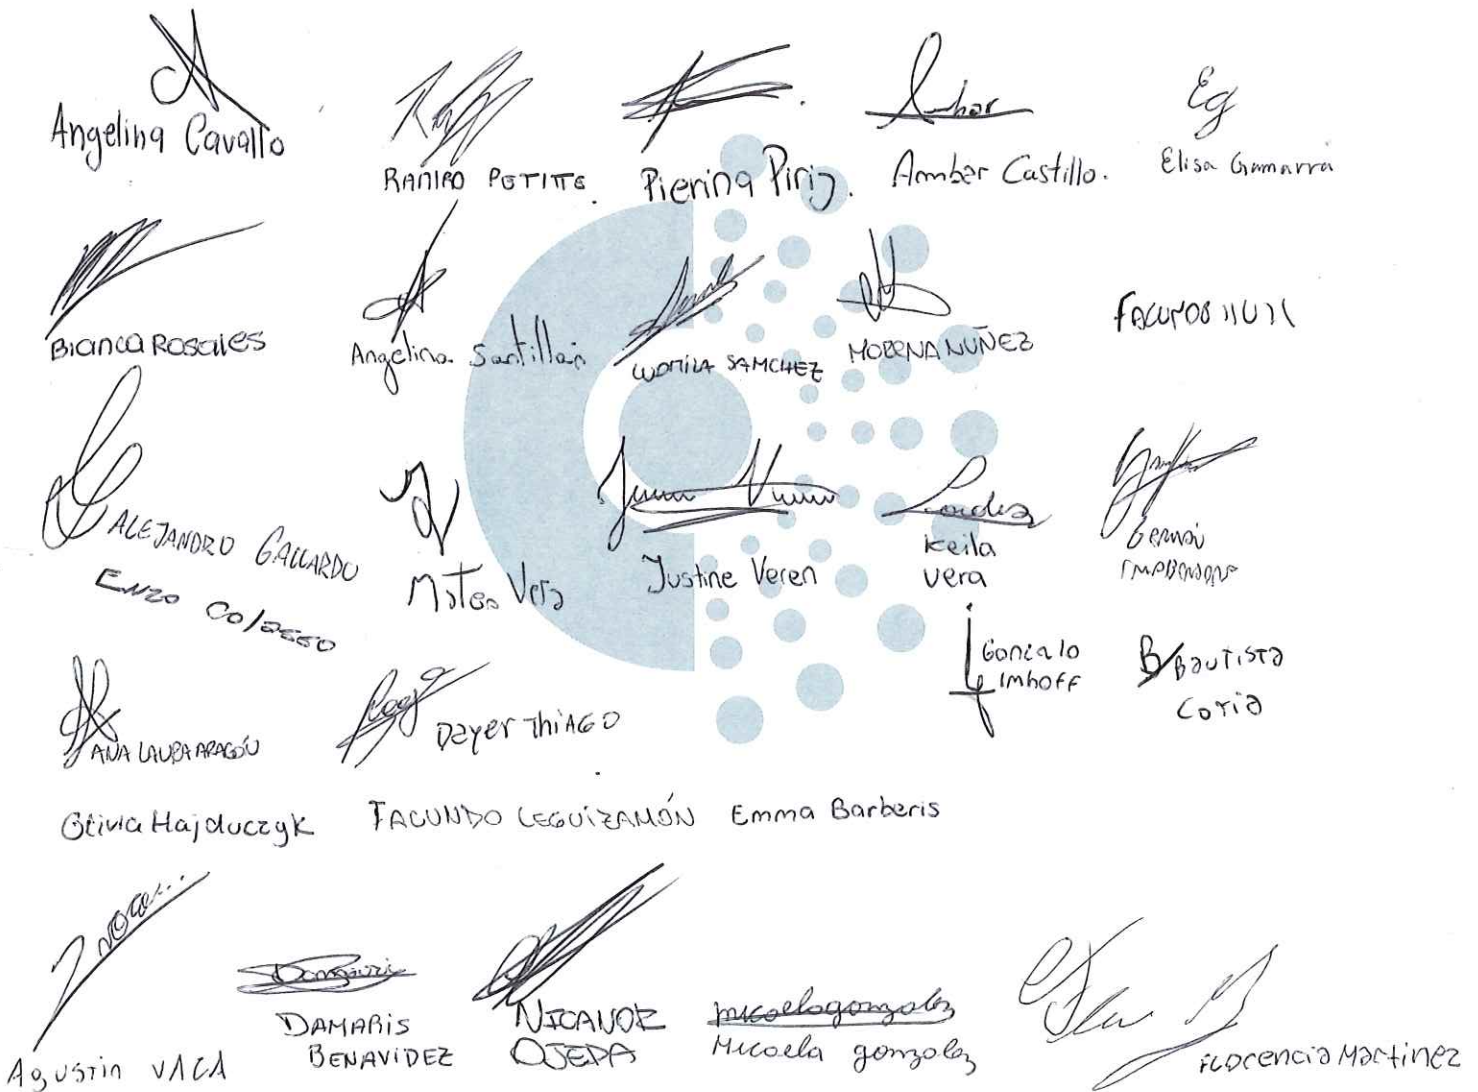 Angelina Cavallo
RAMIRO PETITTE.
Pierina Piriz.
Ambar
Ambar Castillo.
Eg
Elisa Gamarra
Bianca Rosales
Angelina Santillan
LUDMILA SANCHEZ
MORENA NUÑEZ
FACUNDO
ALEJANDRO GALLARDO
ENZO Colasso
Mateo Vera
Justine Veren
Keila
Vera
German
Gonzalo
Imhoff
Bautista
Coria
ANA LAURA ARAGÓN
Dayer ThiAGO
Olivia Hajduczyk
FACUNDO LEGUIZAMÓN
Emma Barberis
Agustin VACA
DAMARIS
BENAVIDEZ
NICANOR
OJEDA
micaelagonzalez
Micaela gonzalez
Florencia Martinez